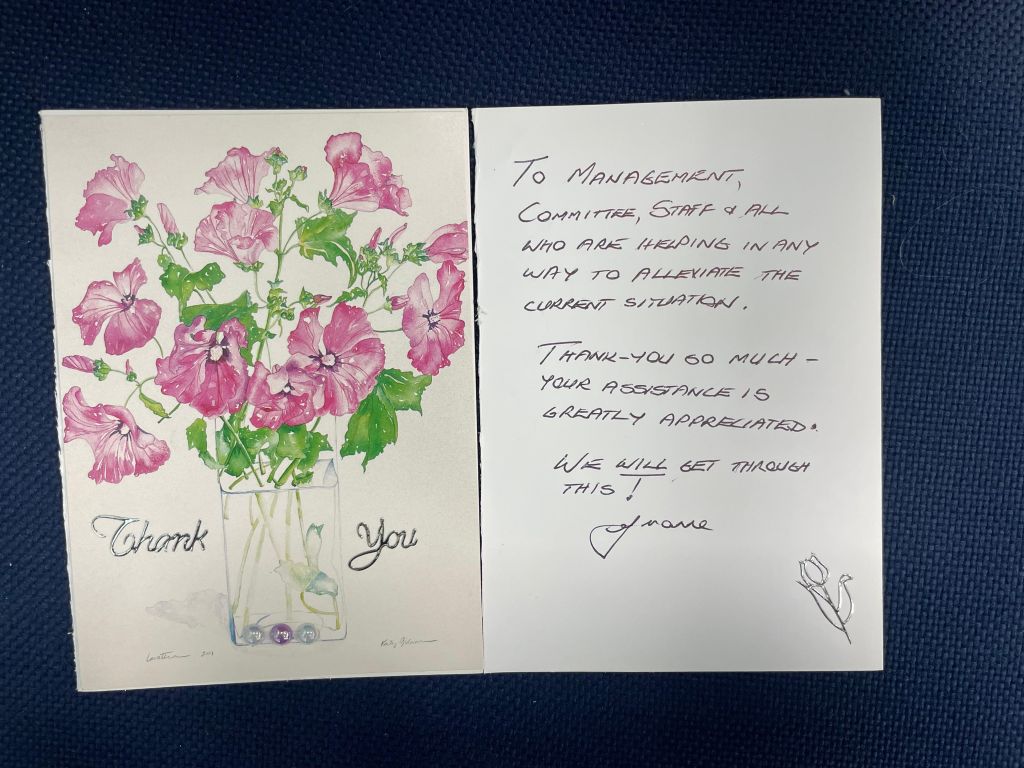 Thank You
Lavatera 2001
To Management,
Committee, Staff & all
who are helping in any
way to alleviate the
current situation.
Thank-you so much –
your assistance is
greatly appreciated.
We will get through
this!